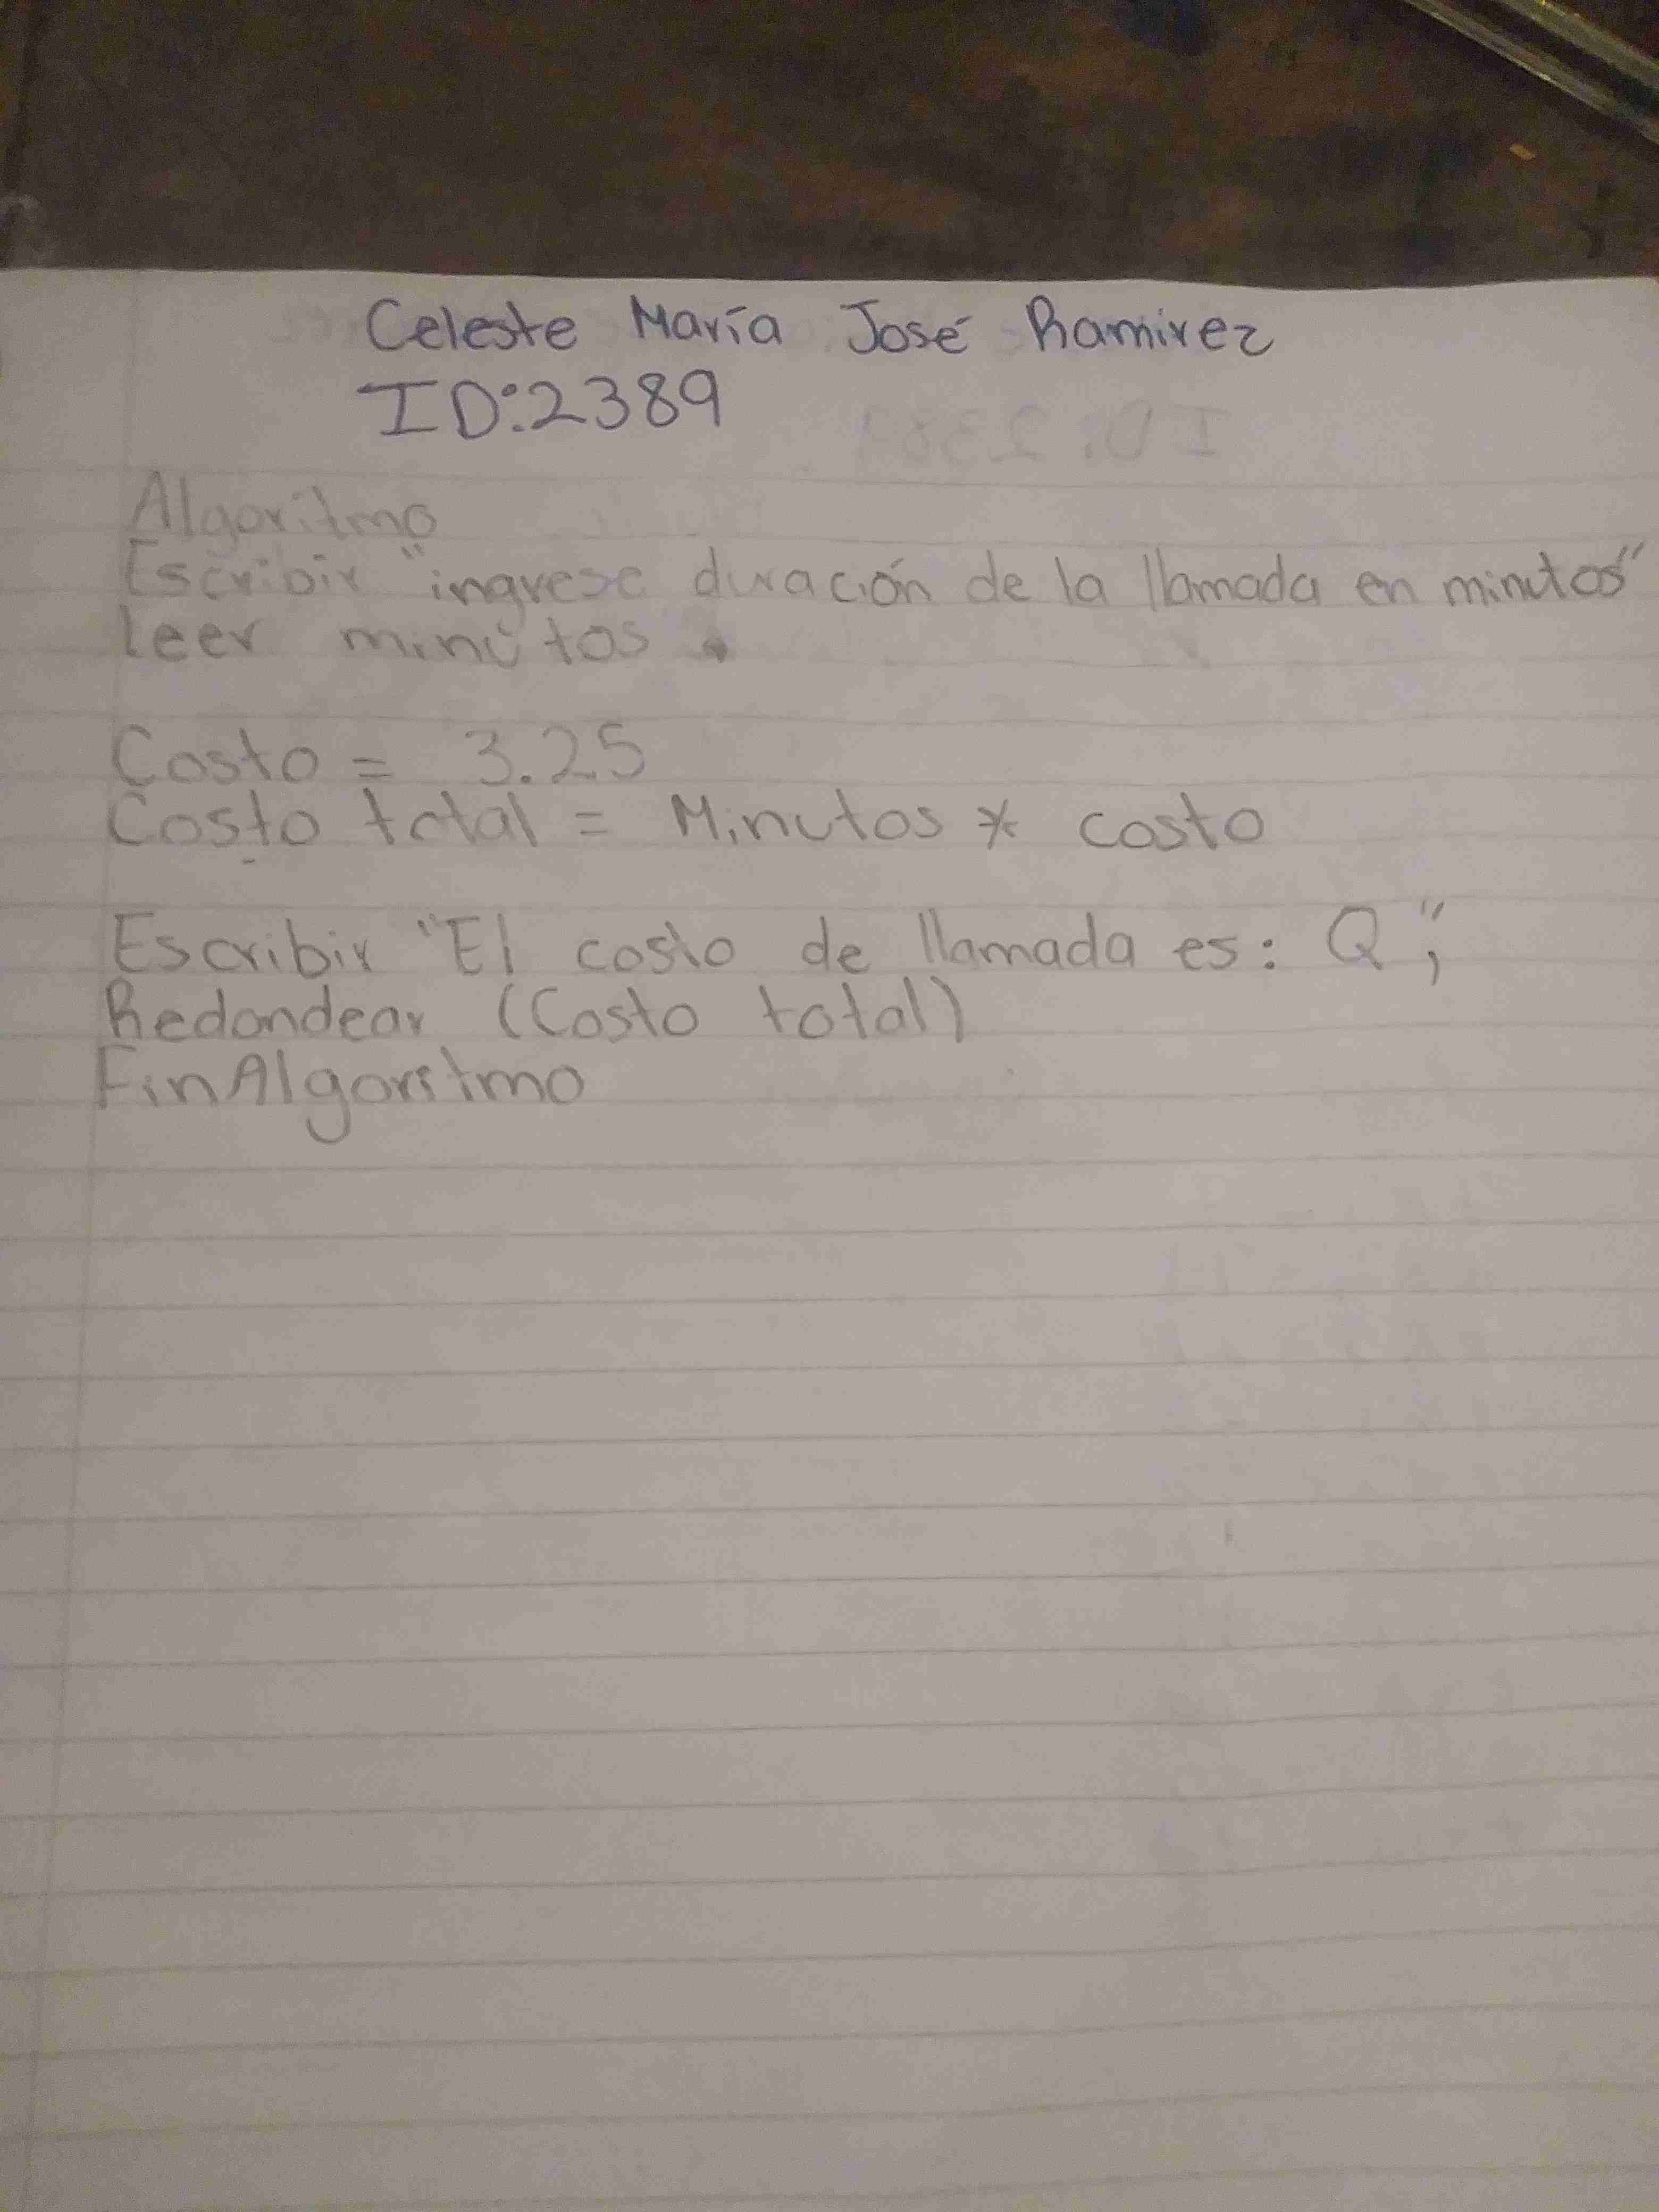 Celeste María José Ramirez
ID:2389
Algoritmo
Escribir "ingrese duración de la llamada en minutos"
leer minutos
Costo = 3.25
Costo total = Minutos * costo
Escribir "El costo de llamada es: Q",
Redondear (Costo total)
FinAlgoritmo